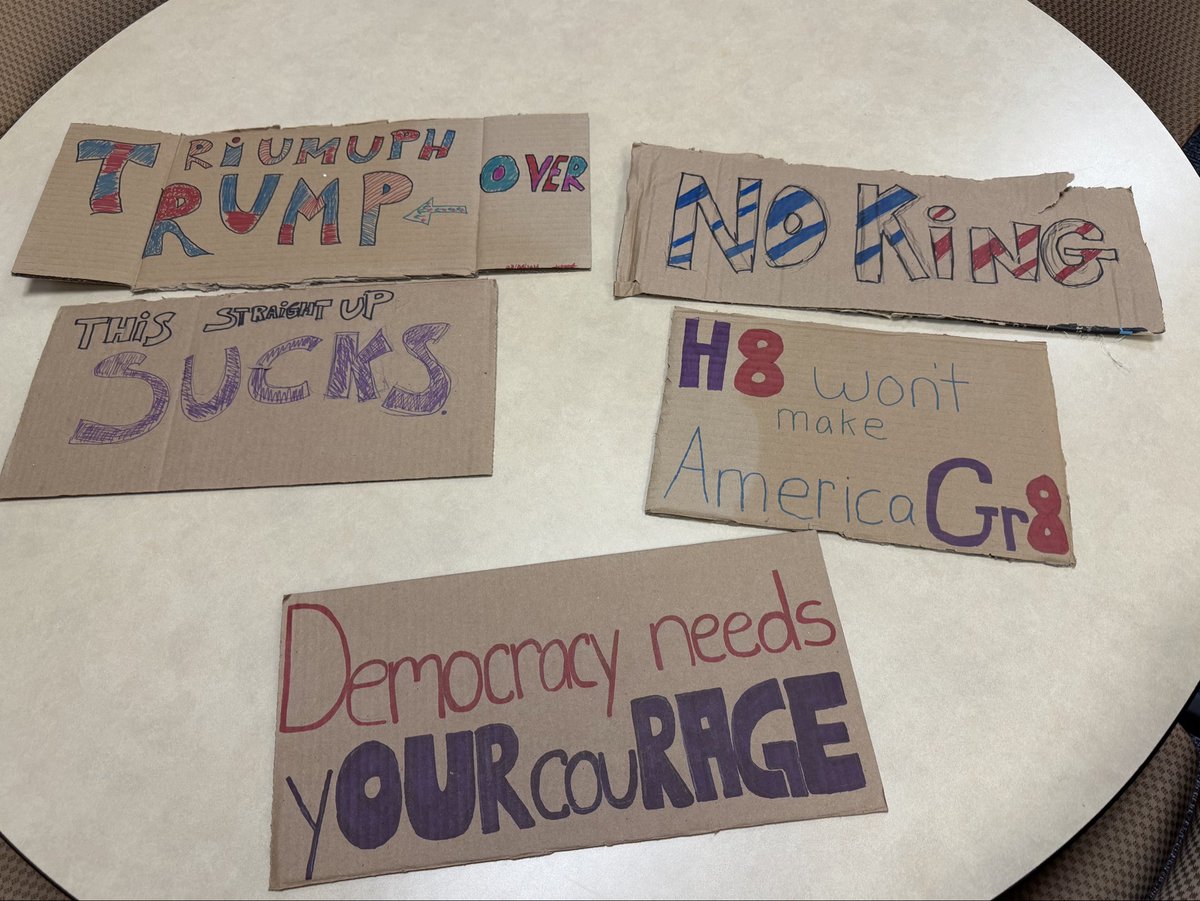 TRIUMUPH
TRUMP ← OVER
NO KiNG
THiS STRAiGHT UP
SUCKS.
H8 won't
make
America Gr8
Democracy needs
yOURcouRAGE